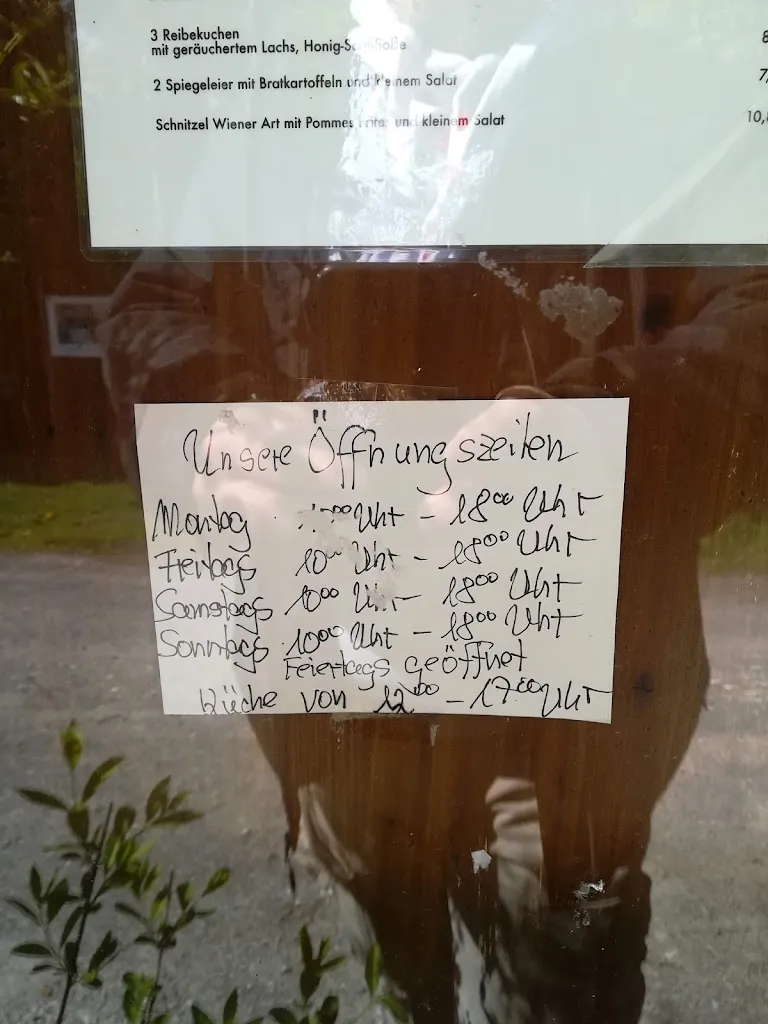 3 Reibekuchen
mit geräuchertem Lachs, Honig-Soße
2 Spiegeleier mit Bratkartoffeln und kleinem Salat
Schnitzel Wiener Art mit Pommes Frites und kleinem Salat 10,
Unsere Öffnungszeiten
Montag Uhr - 18 00 Uhr
Freitags 10 00 Uhr - 18 00 Uhr
Samstags 10 00 Uhr - 18 00 Uhr
Sonntags 10 00 Uhr - 18 00 Uhr
Feiertags geöffnet
Küche von 12 00 - 17 00 Uhr